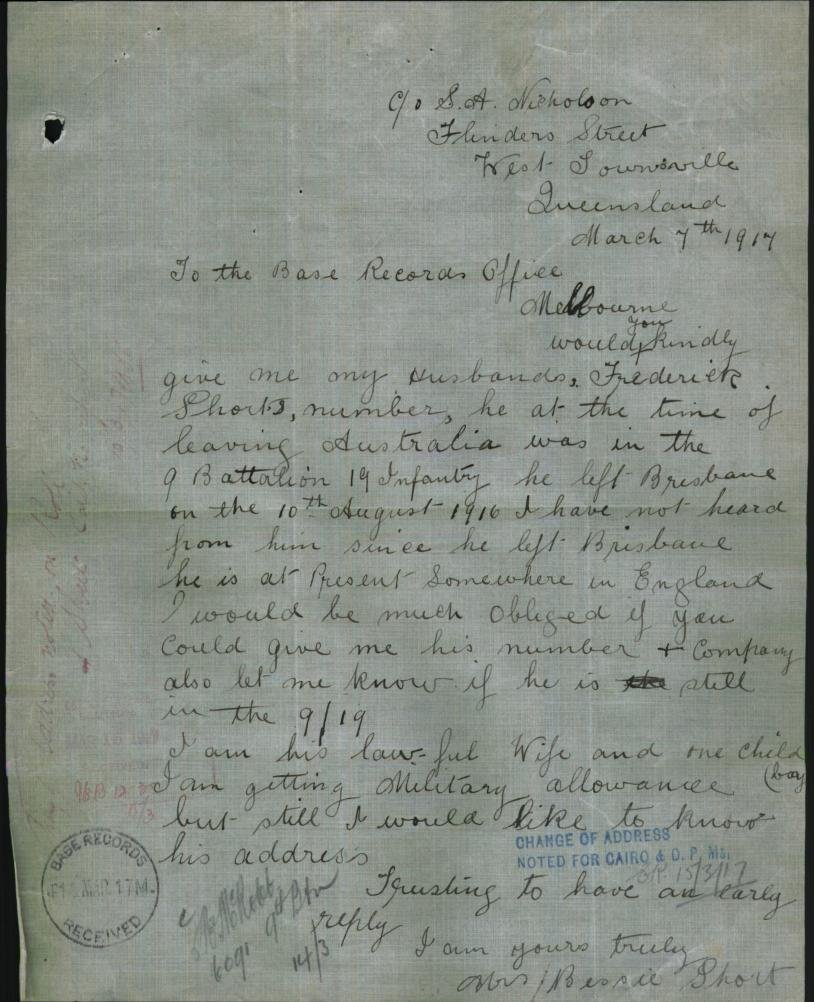 c/o S.A. Nicholson
Flinders Street
West Townsville
Queensland
March 7th 1917
To the Base Records Office
Melbourne
would you kindly
give me my Husbands, Frederick
Shorts, number, he at the time of
leaving Australia was in the
9 Battalion 19 Infantry he left Brisbane
on the 10th August 1916 I have not heard
from him since he left Brisbane
he is at Present Somewhere in England
I would be much obliged if you
Could give me his number + Company
also let me know if he is the still
in the 9/19
I am his law-ful Wife and one child
(boy
I am getting Military allowance
but still I would like to know
his address
CHANGE OF ADDRESS
NOTED FOR CAIRO & O.P. MSI.
15/3/17
Trusting to have an early
reply
I am yours truly
Mrs/Bessie Short
BASE RECORDS
14 MAR. 17
RECEIVED
6091 9th Btn
14/3
Address noted on Roll